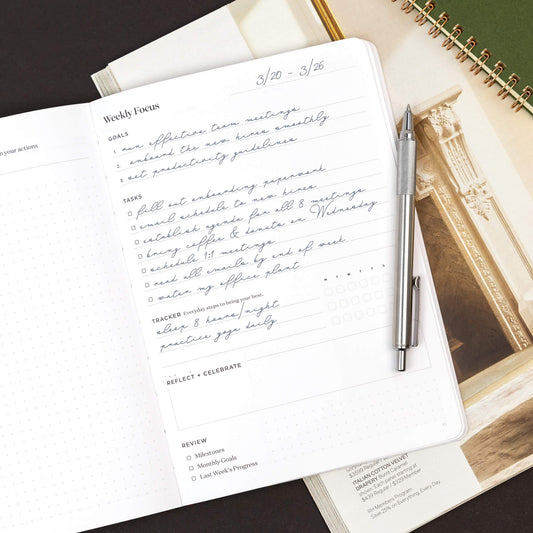 n your actions
3/20 - 3/26
Weekly Focus
GOALS
1. run effective team meetings
2. onboard the new hires smoothly
3. set productivity guidelines
TASKS
fill out onboarding paperwork
email schedule to new hires
establish agenda for all 8 meetings
bring coffee & donuts on Wednesday
schedule 1:1 meetings
read all emails by end of week
water my office plant
TRACKER Everyday steps to being your best.
M T W T F S S
sleep 8 hours/night
practice yoga daily
REFLECT + CELEBRATE
REVIEW
Milestones
Monthly Goals
Last Week's Progress
$3099 Regular
ITALIAN COTTON VELVET
DRAPERY Burnt Caramel
shown. Each panel starting at
$439 Regular / $329 Member
RH Members Program
Save 25% on Everything, Every Day.